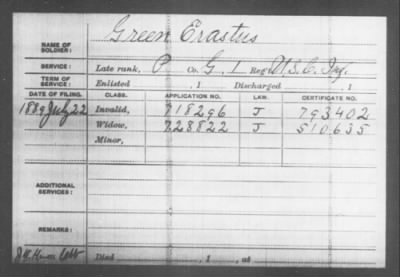 NAME OF SOLDIER: Green Erastus
SERVICE: Late rank, P Co. G, 1 Reg't U.S.C. Inf.
TERM OF SERVICE: Enlisted , 1 Discharged , 1
DATE OF FILING. CLASS. APPLICATION NO. LAW. CERTIFICATE NO.
1889 July 22 Invalid, 718296 J 793402
Widow, 728822 J 510635
Minor,
ADDITIONAL SERVICES:
REMARKS:
Died , 1 , at